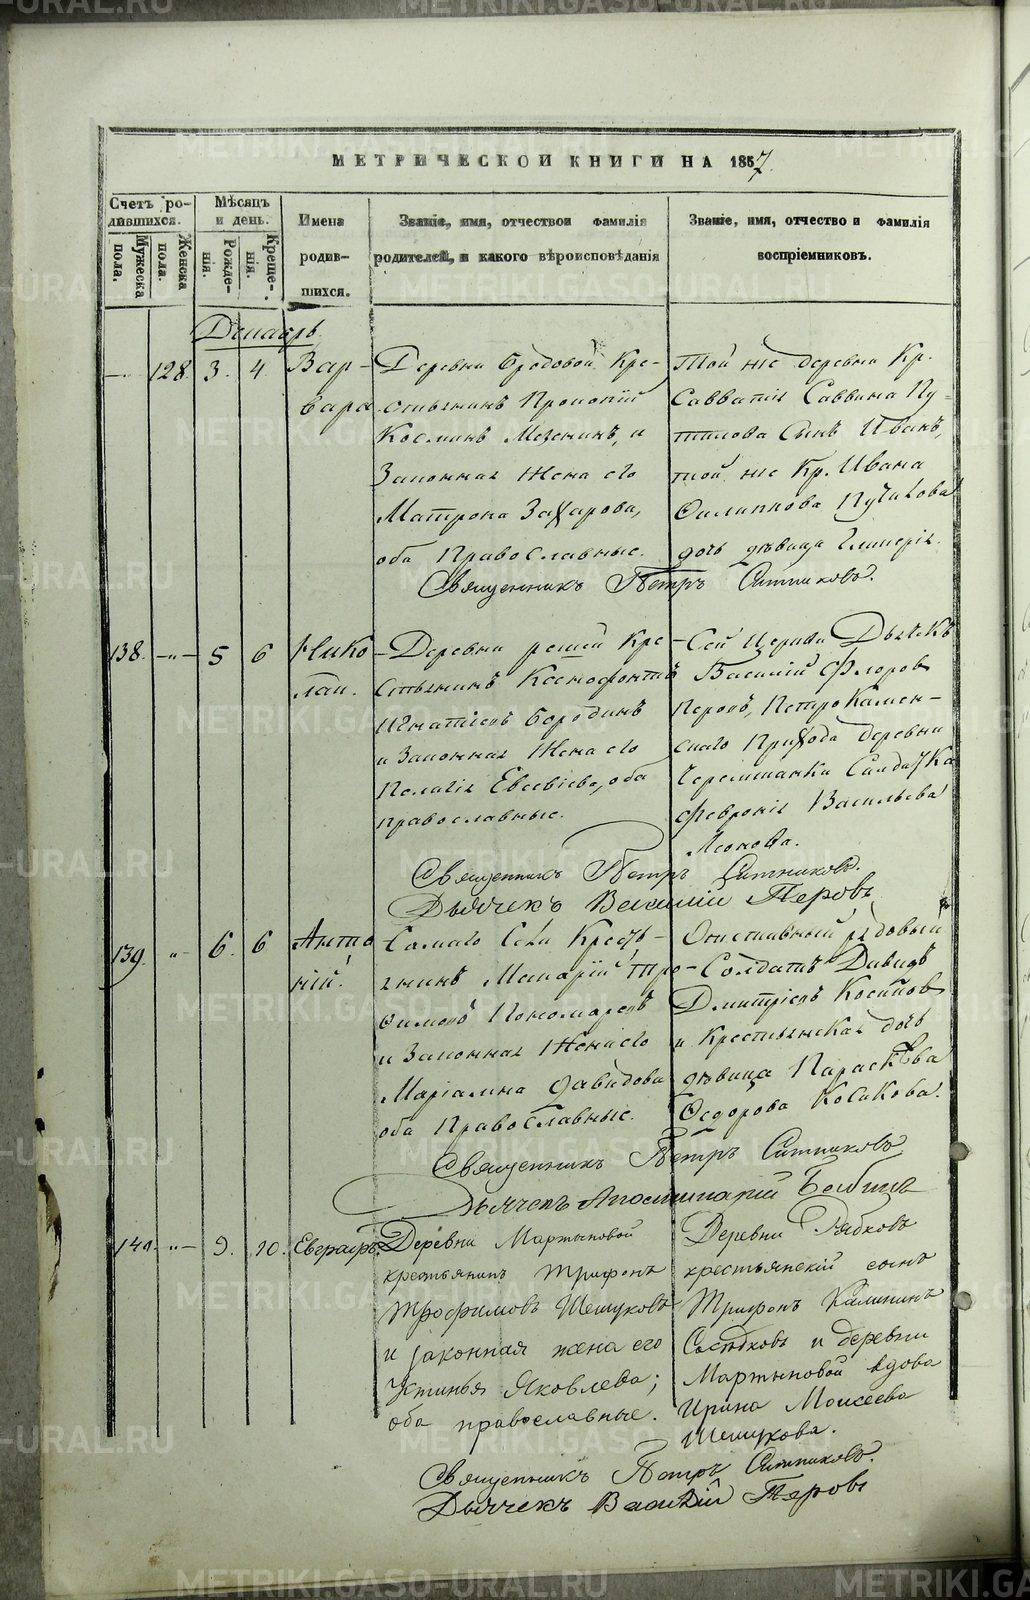 МЕТРИЧЕСКОЙ КНИГИ НА 1857
Счетъ ро-
дившихся.
Мужеска
пола.
Женска
пола.
Мѣсяцъ
и день.
Рожде-
нія.
Креще-
нія.
Имена
родив-
шихся.
Званіе, имя, отчество и фамилія
родителей, и какого вѣроисповѣданія
Званіе, имя, отчество и фамилія
воспріемниковъ.
Декабрь
128 3. 4 Вар-
вара
Деревни Бродовой Кре-
стьянинъ Прокопій
Косминъ Мезенинъ, и
Законная Жена его
Матрона Захарова,
оба Православные.
Той же деревни Кр.
Савватія Саввина Пу-
тилова Сынъ Иванъ,
той же Кр. Ивана
Филиппова
дочь дѣвица Гликерія.
Священникъ Петръ Ситниковъ.
138. -"- 5 6 Нико-
лай.
Деревни Кре-
стьянинъ Ксенофонтъ
Игнатіевъ Бородинъ
и Законная Жена его
Пелагія Евсевіева, оба
православные.
Сей Церкви Дьячекъ
Василій Флоровъ
Перовъ, Петрокамен-
скаго Прихода деревни
Черемшанки Солдатка
Февронія Васильева
Священникъ Петръ Ситниковъ.
Дьячекъ Василій Перовъ
139. " 6. 6 Анто-
ній.
Самаго Села Кресть-
янинъ Макарій Тро-
фимовъ Пономаревъ
и Законная Жена его
Маріамна Давидова
оба Православные.
Отставный рядовый
Солдатъ Давидъ
Дмитріевъ Косиковъ
и Крестьянская дочь
дѣвица Параскева
Ѳедорова Косикова.
Священникъ Петръ Ситниковъ
Дьячекъ Аполлинарій Бабинъ
140. -"- 9. 10. Евграфъ.
Деревни Мартыновой
крестьянинъ Трифонъ
Трофимовъ Шешуковъ
и законная жена его
Устинья Яковлева;
оба православные.
Деревни Рябковъ
крестьянскій сынъ
Трифонъ Калининъ
Сосѣдковъ и деревни
Мартыновой вдова
Ирина Моисеева
Шешукова.
Священникъ Петръ Ситниковъ.
Дьячекъ Василій Перовъ
METRIKI.GASO-URAL.RU